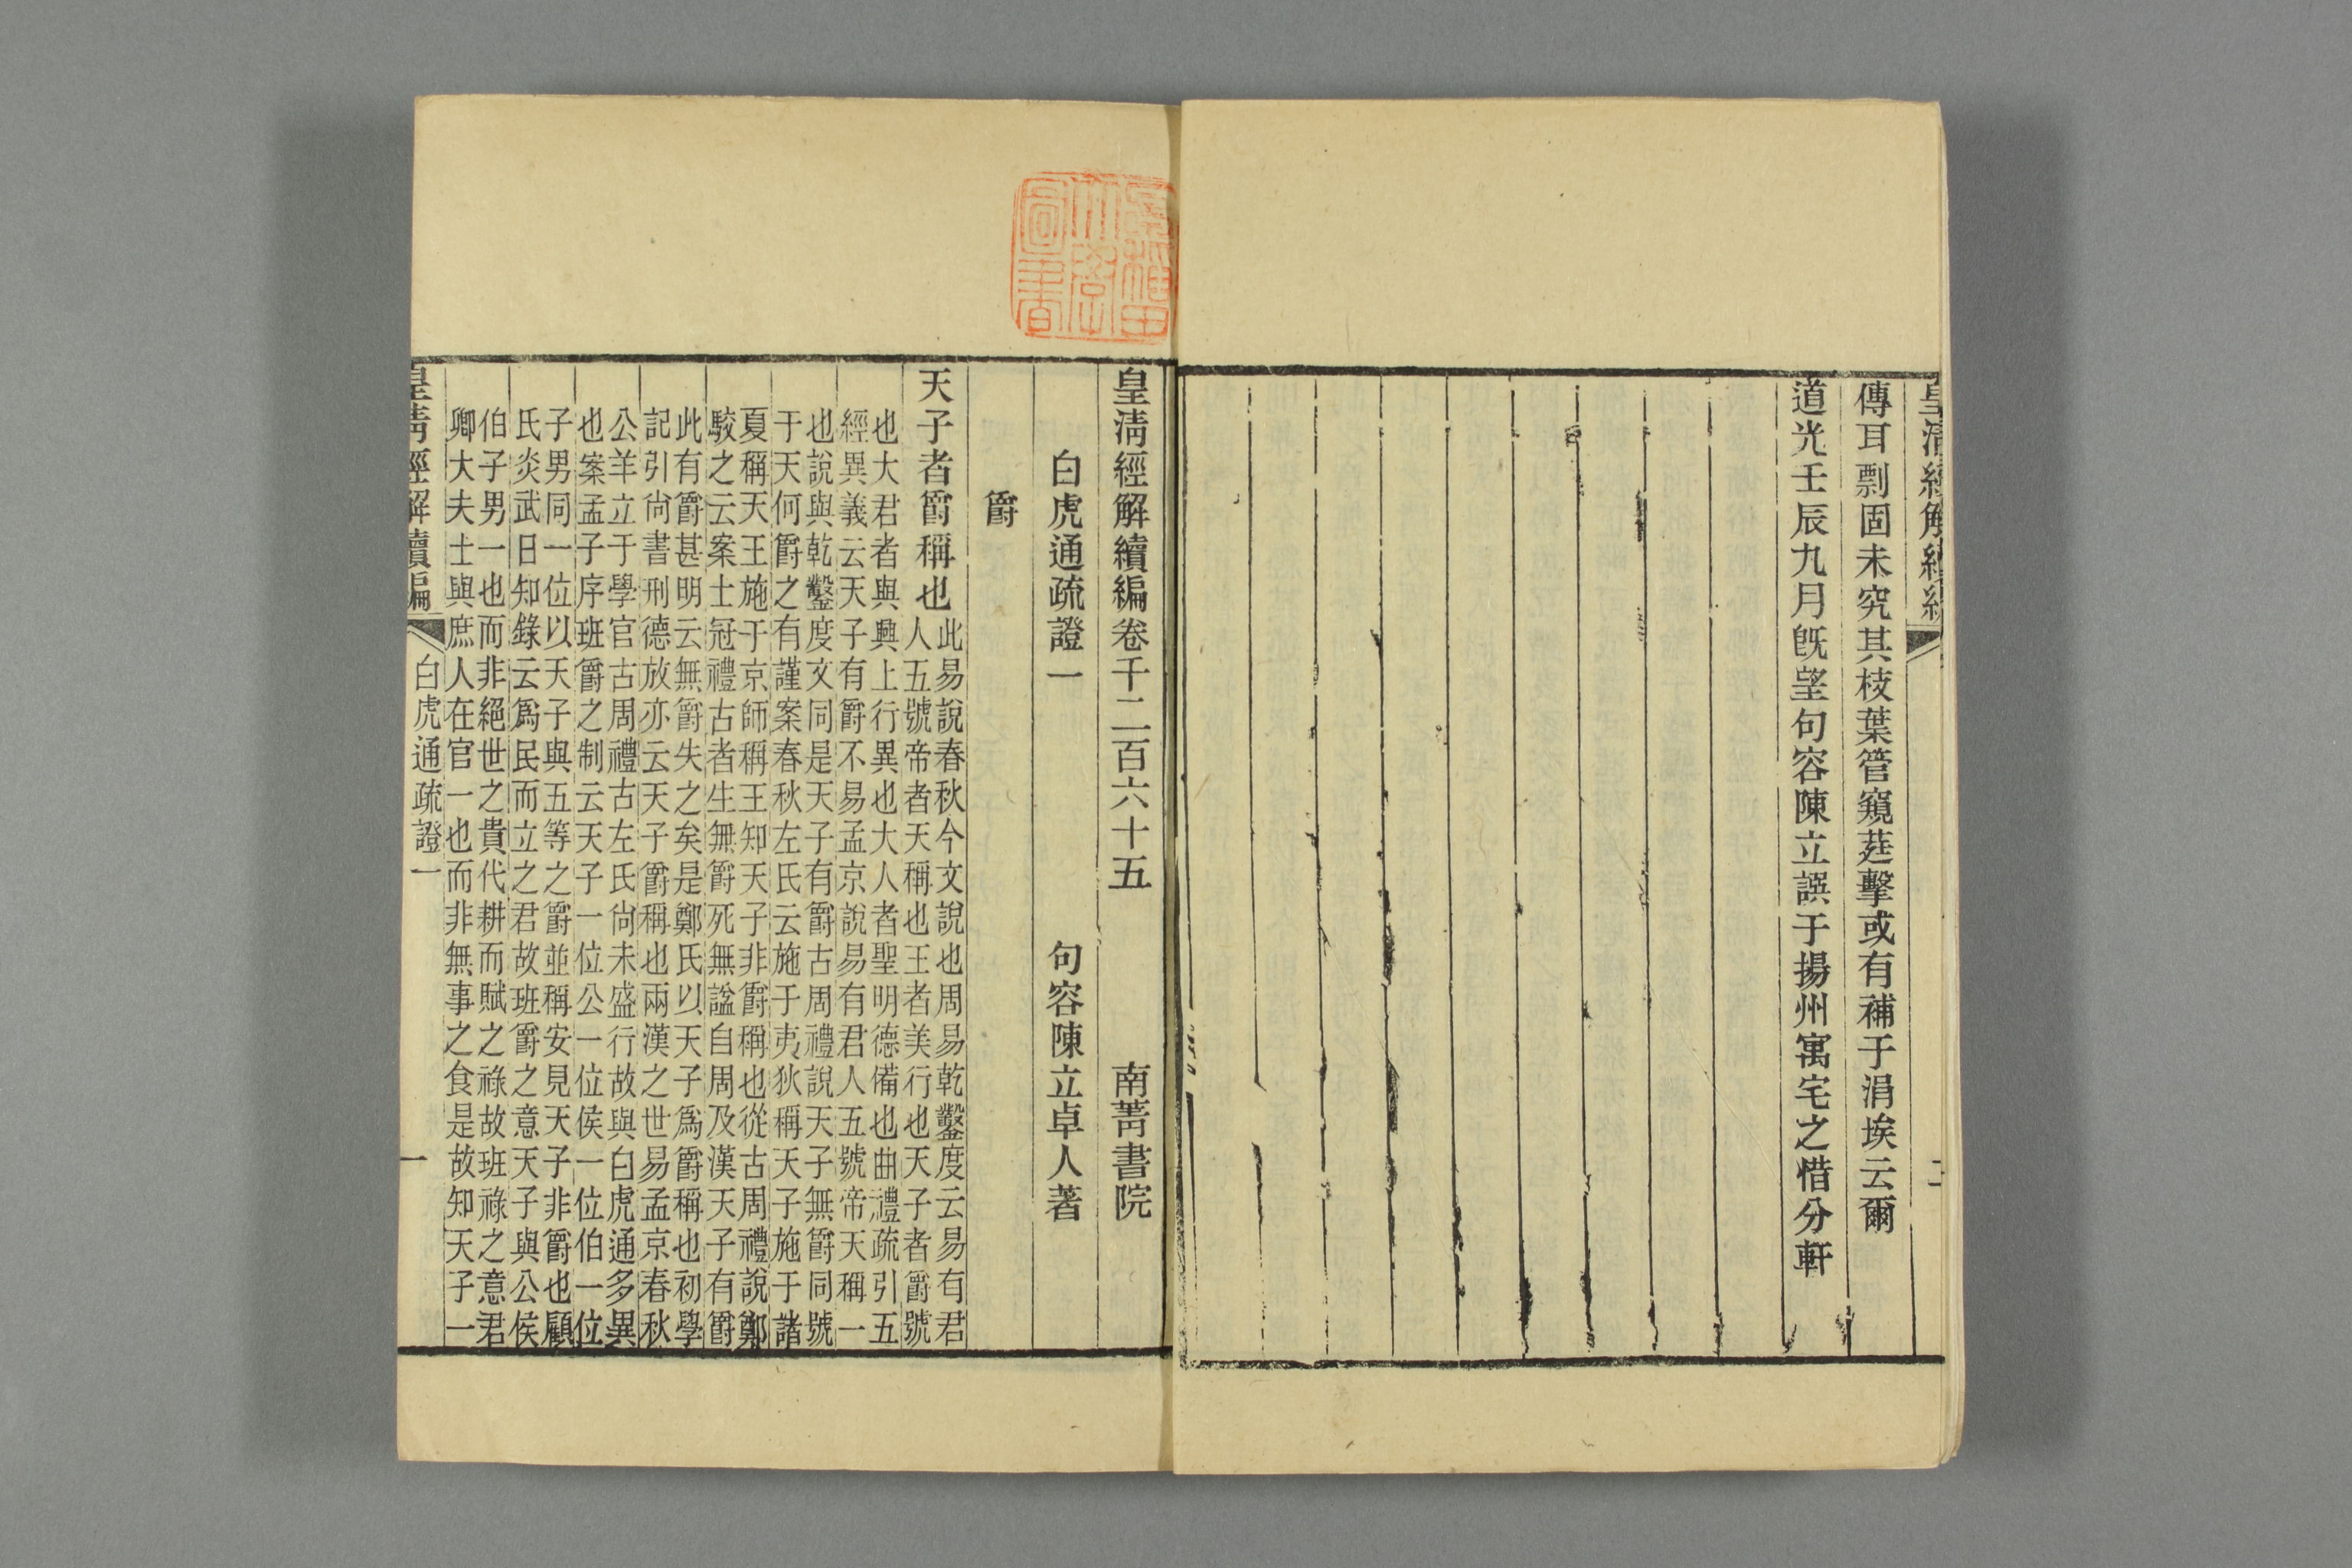 皇清經解續編
二
傳耳剽固未究其枝葉管窺莛擊或有補于涓埃云爾
道光壬辰九月旣望句容陳立譔于揚州寓宅之惜分軒
皇清經解續編卷千二百六十五
南菁書院
白虎通疏證一
句容陳立卓人著
爵
天子者爵稱也
此易說春秋今文說也周易乾鑿度云易有君
人五號帝者天稱也王者美行也天子者爵號
也大君者與興上行異也大人者聖明德備也曲禮疏引五
經異義云天子有爵不易孟京說易有君人五號帝天稱一
也說與乾鑿度文同是天子有爵古周禮說天子無爵同號
于天何爵之有謹案春秋左氏云施于夷狄稱天子施于諸
夏稱天王施于京師稱王知天子非爵稱也從古周禮說鄭
駮之云案士冠禮古者生無爵死無諡自周及漢天子有爵
此有爵甚明云無爵失之矣是鄭氏以天子爲爵稱也初學
記引尙書刑德放亦云天子爵稱也兩漢之世易孟京春秋
公羊立于學官古周禮古左氏尙未盛行故與白虎通多異
也案孟子序班爵之制云天子一位公一位侯一位伯一位
子男同一位以天子與五等之爵並稱安見天子非爵也顧
氏炎武日知錄云爲民而立之君故班爵之意天子與公侯
伯子男一也而非絕世之貴代耕而賦之祿故班祿之意君
卿大夫士與庶人在官一也而非無事之食是故知天子一
皇清經解續編
白虎通疏證一
一
圖書